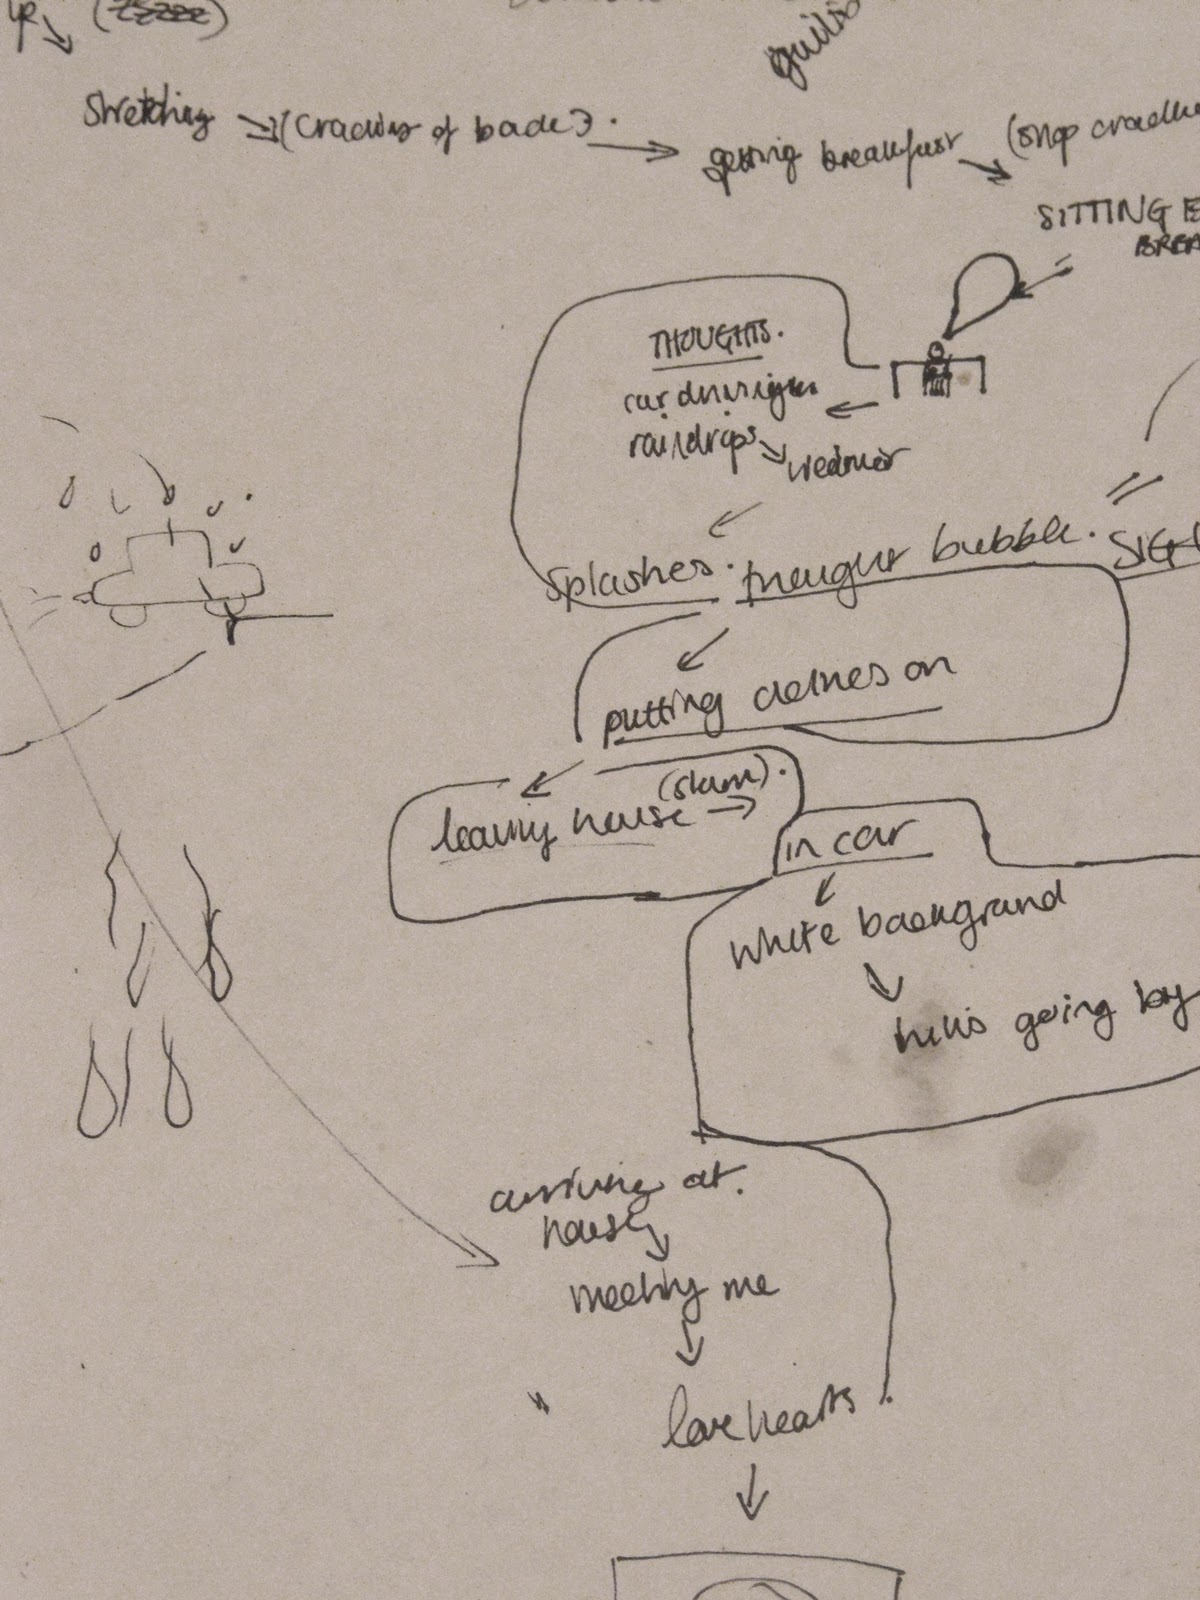 (zzzzz)
Stretching (cracking of back).
getting breakfast (snap crackle
SITTING E
BREA
THOUGHTS.
car driving in
raindrops
weather
splashes. thought bubble.
SIG
putting clothes on
(slam).
leaving house
in car
white background
hills going by
arriving at.
house
meeting me
love hearts